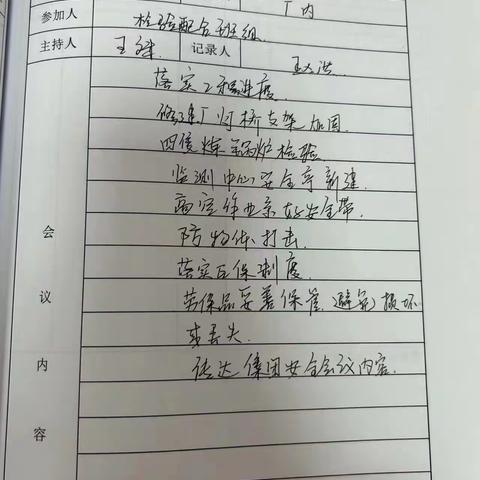 厂内
参加人 检验配合班组
主持人 王 记录人 王洪
落实工程进度
修建厂 桥支架加固
四 炼锅炉检验
监测中心安全亭新建
高空作业系好安全带
防物体打击
落实互保制度
劳保品妥善保管,避免损坏
或丢失
传达集团安全会议内容
会议内容